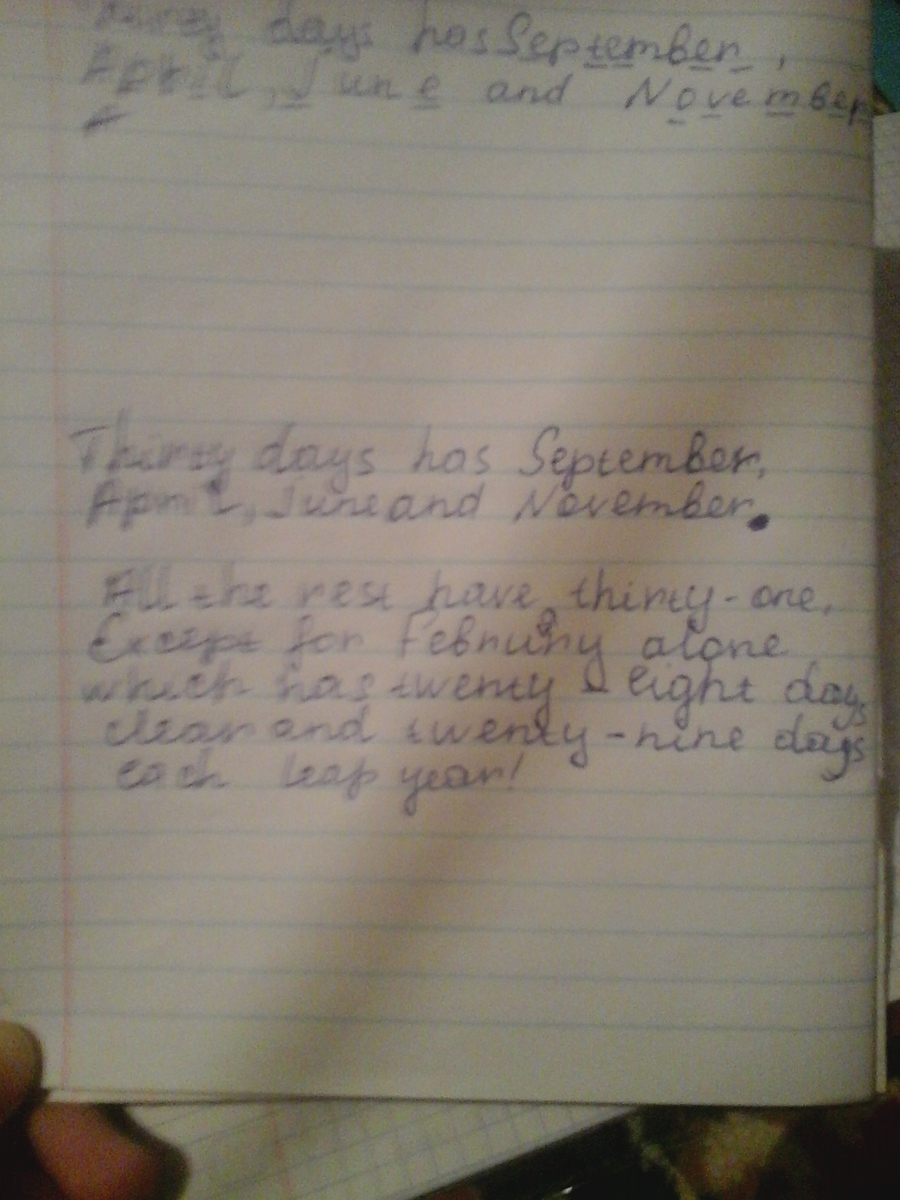 Thirty days has September,
April, June and November
Thirty days has September,
April, June and November.
All the rest have thirty-one,
Except for Februay alone
which has twenty-eight days
clear and twenty-nine days
each leap year!